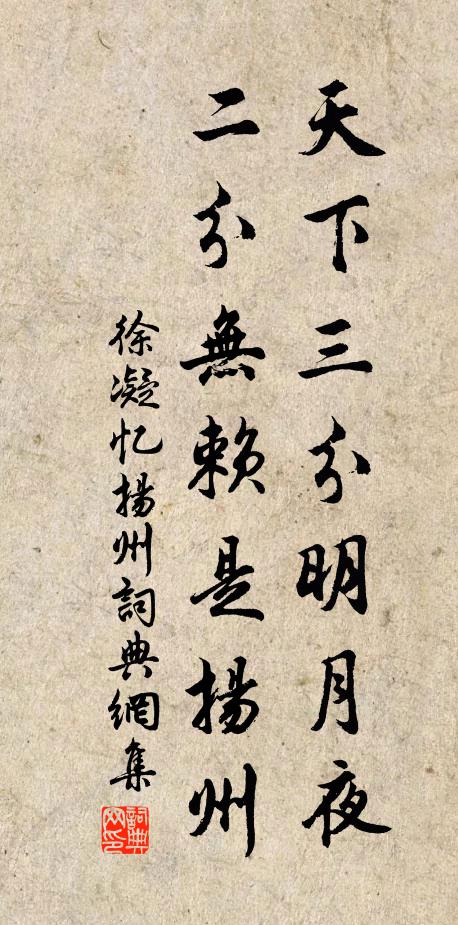 天下三分明月夜
二分無賴是揚州
徐凝忆揚州詞典網集
詞典网印